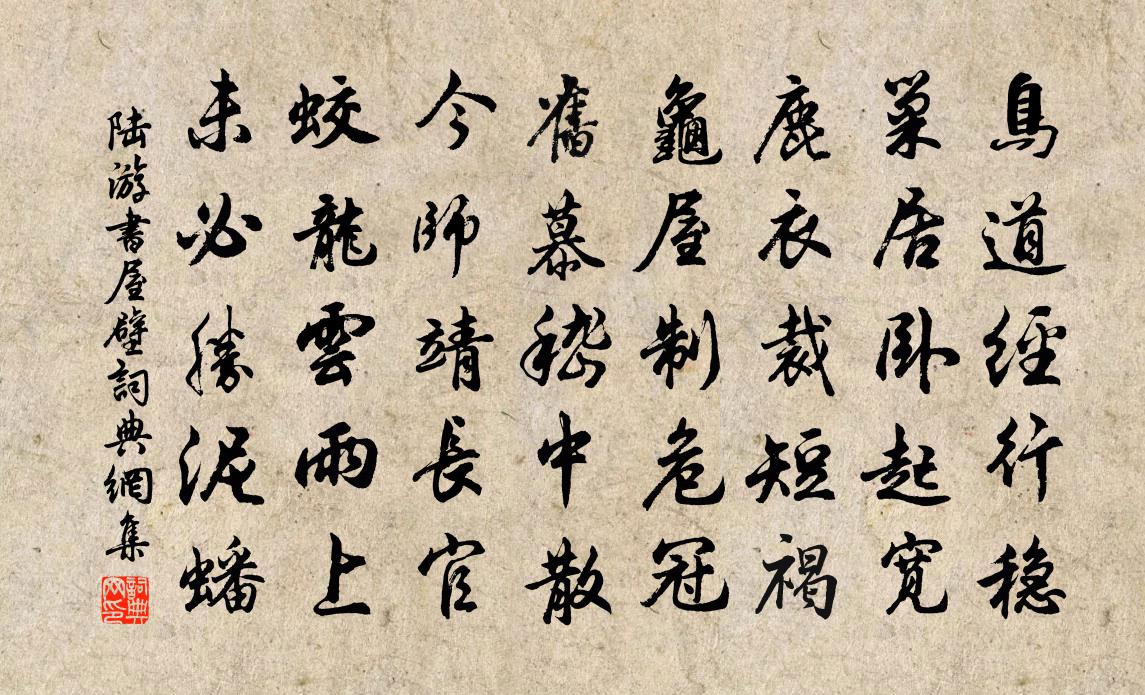 鳥道經行穏
巢居卧起寛
鹿衣裁短褐
龜屋制危冠
舊慕嵇中散
今師靖長官
蛟龍雲雨上
未必勝泥蟠
陆游書屋壁詞典網集
詞典网印